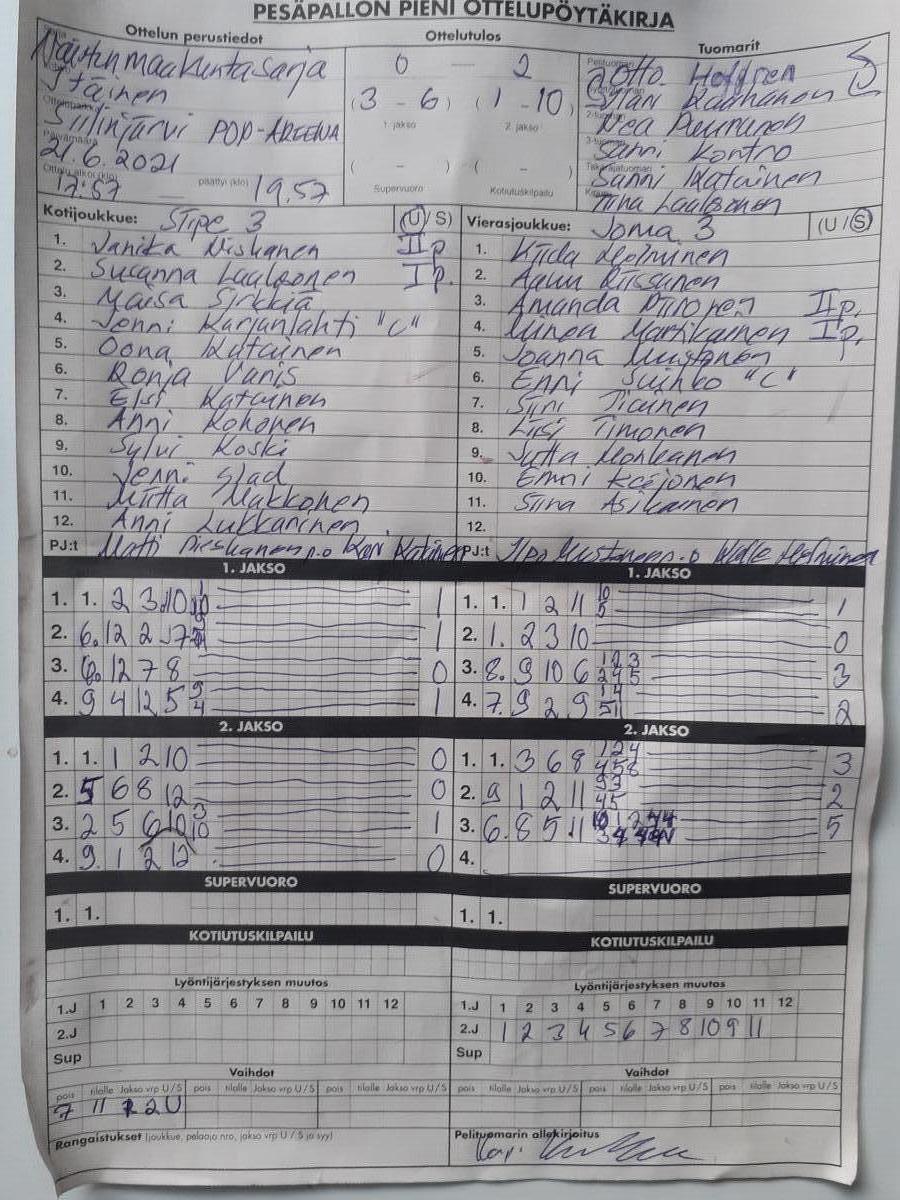 PESÄPALLON PIENI OTTELUPÖYTÄKIRJA
Ottelun perustiedot
Ottelutulos
Tuomarit
Naisten maakuntasarja
Itäinen
Siilinjärvi POP-AREENA
Päivämäärä
21.6.2021
Ottelu alkoi (klo) 17:57 päättyi (klo) 19.57
0 — 2
(3 - 6) (1 - 10)
1. jakso 2. jakso
( - ) ( - )
Supervuoro Kotiutuskilpailu
Otto
Nea
Sanni Kontro
Sanni Katainen
Tiina Laukkanen
Kotijoukkue: Siipe 3 (U/S)
1. Janika Niskanen II p.
2. Susanna Laukkanen I p.
3. Maisa Sirkkiä
4. Jenni Karjanlahti "C"
5. Oona Katainen
6. Ronja Vanis
7. Elsi Katainen
8. Anni Kokonen
9. Sylvi Koski
10. Jenni
11. Miitta Makkonen
12. Anni Lukkarinen
PJ:t Matti p.o Kari Katainen
Vierasjoukkue: Joma 3 (U/S)
1. Kiida Helminen
2. Aamu Riissanen
3. Amanda Piironen II p.
4. Minea Martikainen I p.
5. Joanna Mustonen
6. Enni Suihko "C"
7. Siini Tiainen
8. Liisi Timonen
9. Jutta Monkanen
10. Emmi Keijonen
11. Siina Asikainen
12.
PJ:t Mustonen p.o Helminen
1. JAKSO
1. 1. 2 3 10 1
2. 6. 12 2 7 1
3. 6. 12 7 8 0
4. 9 4 12 5 9 4 1
1. JAKSO
1. 1. 1 2 11 10 5 1
2. 1. 2 3 10 0
3. 8. 9 10 6 1 2 3 2 4 5 3
4. 7. 9 2 9 1 4 5 1 2
2. JAKSO
1. 1. 1 2 10 0
2. 5 6 8 12 0
3. 2 5 6 10 3 10 1
4. 9. 1 2 12 0
2. JAKSO
1. 1. 3 6 8 1 2 4 4 5 8 3
2. 9 1 2 11 3 3 4 5 2
3. 6. 8 5 11 5
4.
SUPERVUORO
1. 1.
SUPERVUORO
1. 1.
KOTIUTUSKILPAILU
KOTIUTUSKILPAILU
Lyöntijärjestyksen muutos
1.J 1 2 3 4 5 6 7 8 9 10 11 12
2.J
Sup
Lyöntijärjestyksen muutos
1.J 1 2 3 4 5 6 7 8 9 10 11 12
2.J 1 2 3 4 5 6 7 8 10 9 11
Sup
Vaihdot
pois tilalle Jakso vrp U/S pois tilalle Jakso vrp U/S pois tilalle Jakso vrp U/S
7 11 2 2 U
Vaihdot
pois tilalle Jakso vrp U/S pois tilalle Jakso vrp U/S pois tilalle Jakso vrp U/S
Rangaistukset (joukkue, pelaaja nro, jakso vrp U / S ja syy)
Pelituomarin allekirjoitus